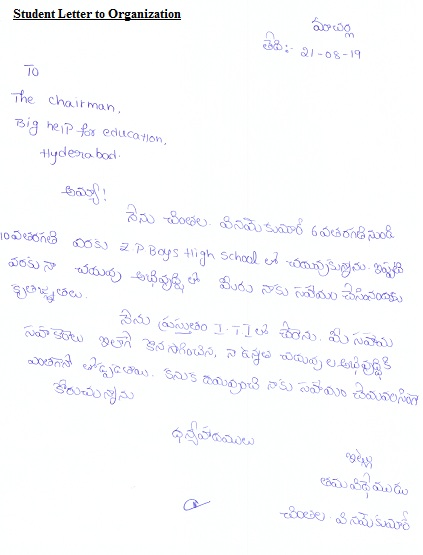 Student Letter to Organization
మాచర్ల
తేది:- 21-08-19
TO
The chairman,
Big help for education,
Hyderabad.
అమ్మా!
నేను చింతల. వినయ్ కుమార్ 6వతరగతి నుండి
10వతరగతి వరకు Z P Boys High school లో చదువుకున్నాను. ఇప్పటి
వరకు నా చదువు అభివృద్ధి లో మీరు నాకు సహాయం చేసినందుకు
కృతజ్ఞతలు.
నేను ప్రస్తుతం I.T.I లో చేరాను. మీ సహాయ
సహకారాలు ఇలాగే కొనసాగించిన, నా ఉన్నత చదువుల అభివృద్ధికి
ఎంతగానో తోడ్పడతాయి. కనుక దయవుంచి నాకు సహాయం చేయవలసిందిగా
కోరుచున్నాను
ధన్యవాదములు
ఇట్లు
తమ విధేయుడు
చింతల. వినయ్ కుమార్